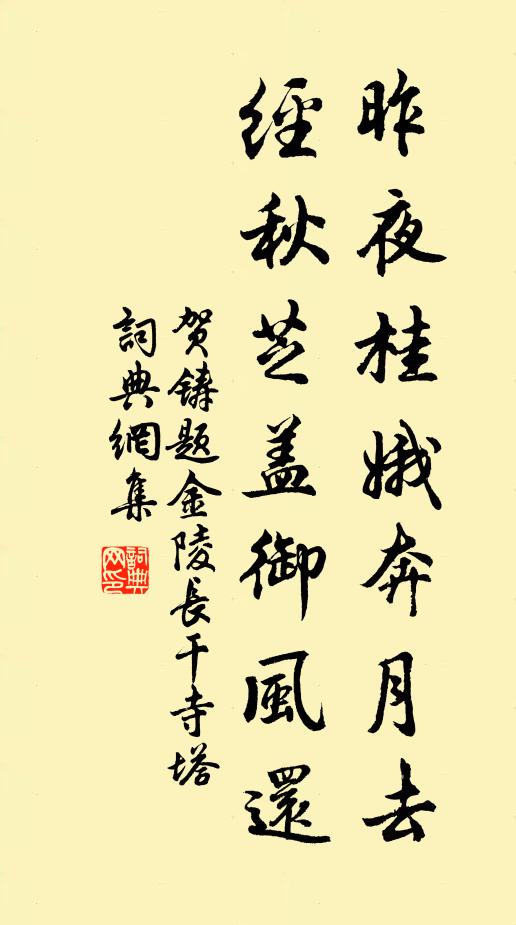 昨夜桂娥奔月去
經秋芝盖御風還
贺鑄题金陵長干寺塔
詞典網集
詞典网印